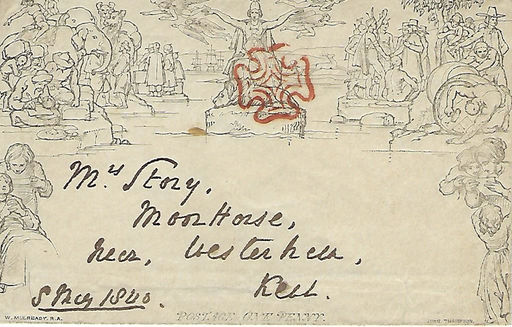 Mrs Story,
Moor House,
near, Westerham,
Kent.
8 May 1840.
W. MULREADY, R.A.
POSTAGE ONE PENNY.
JOHN THOMPSON.